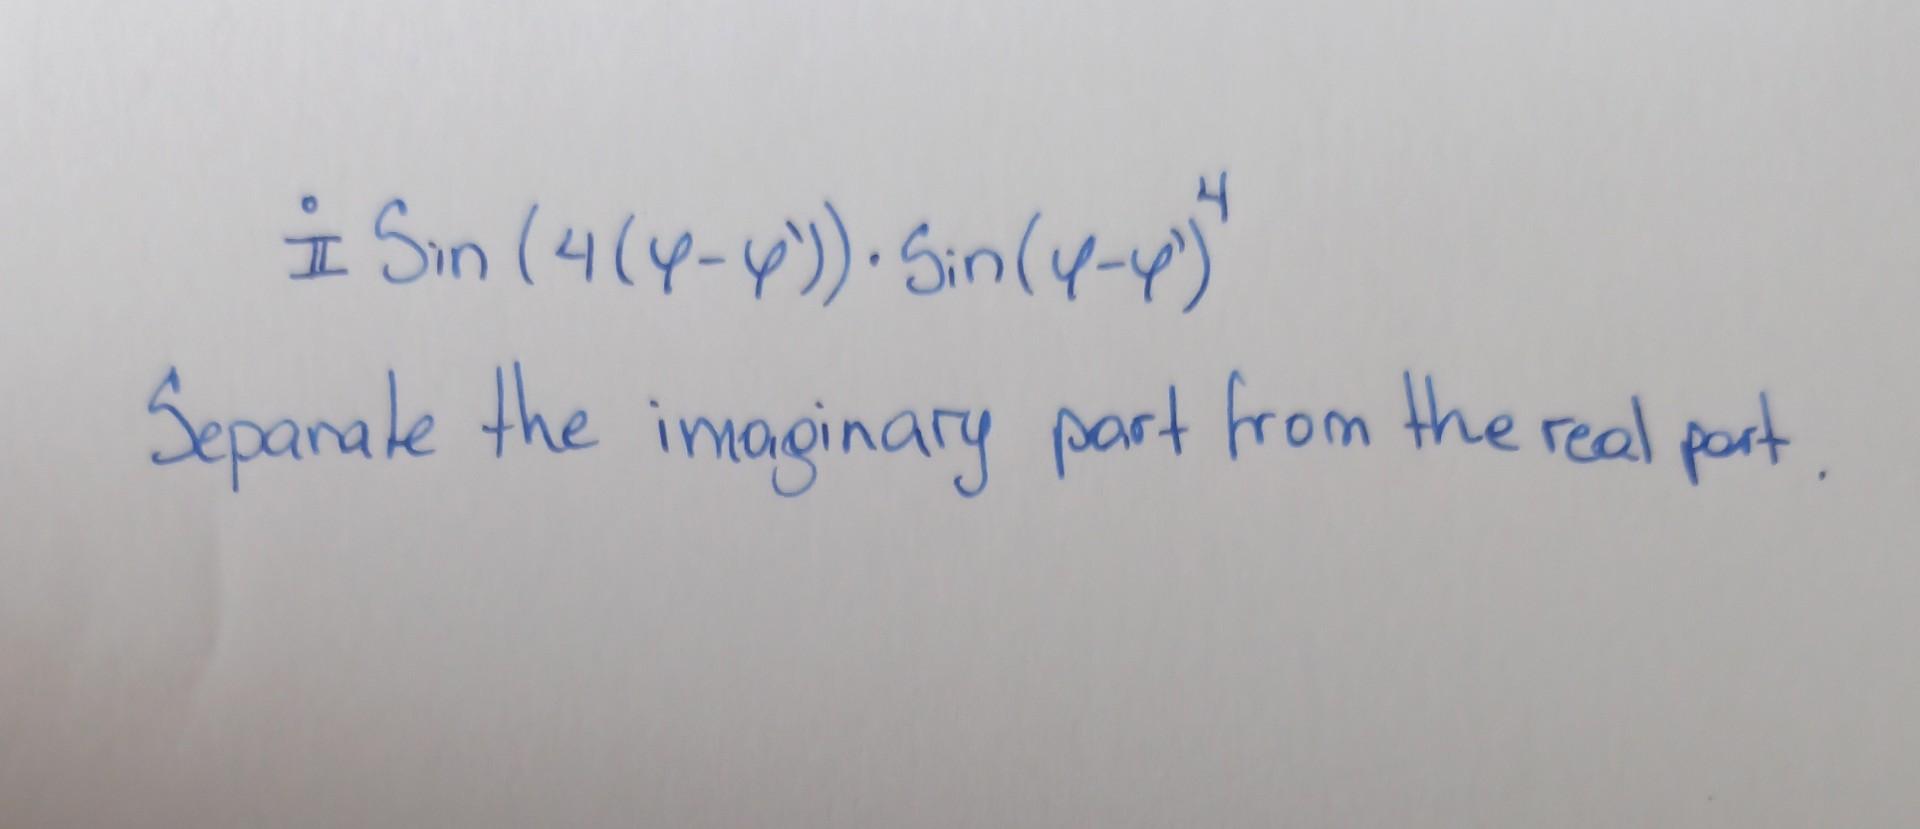 i/π Sin (4(φ-φ')) · Sin(φ-φ')⁴
Separate the imaginary part from the real part.